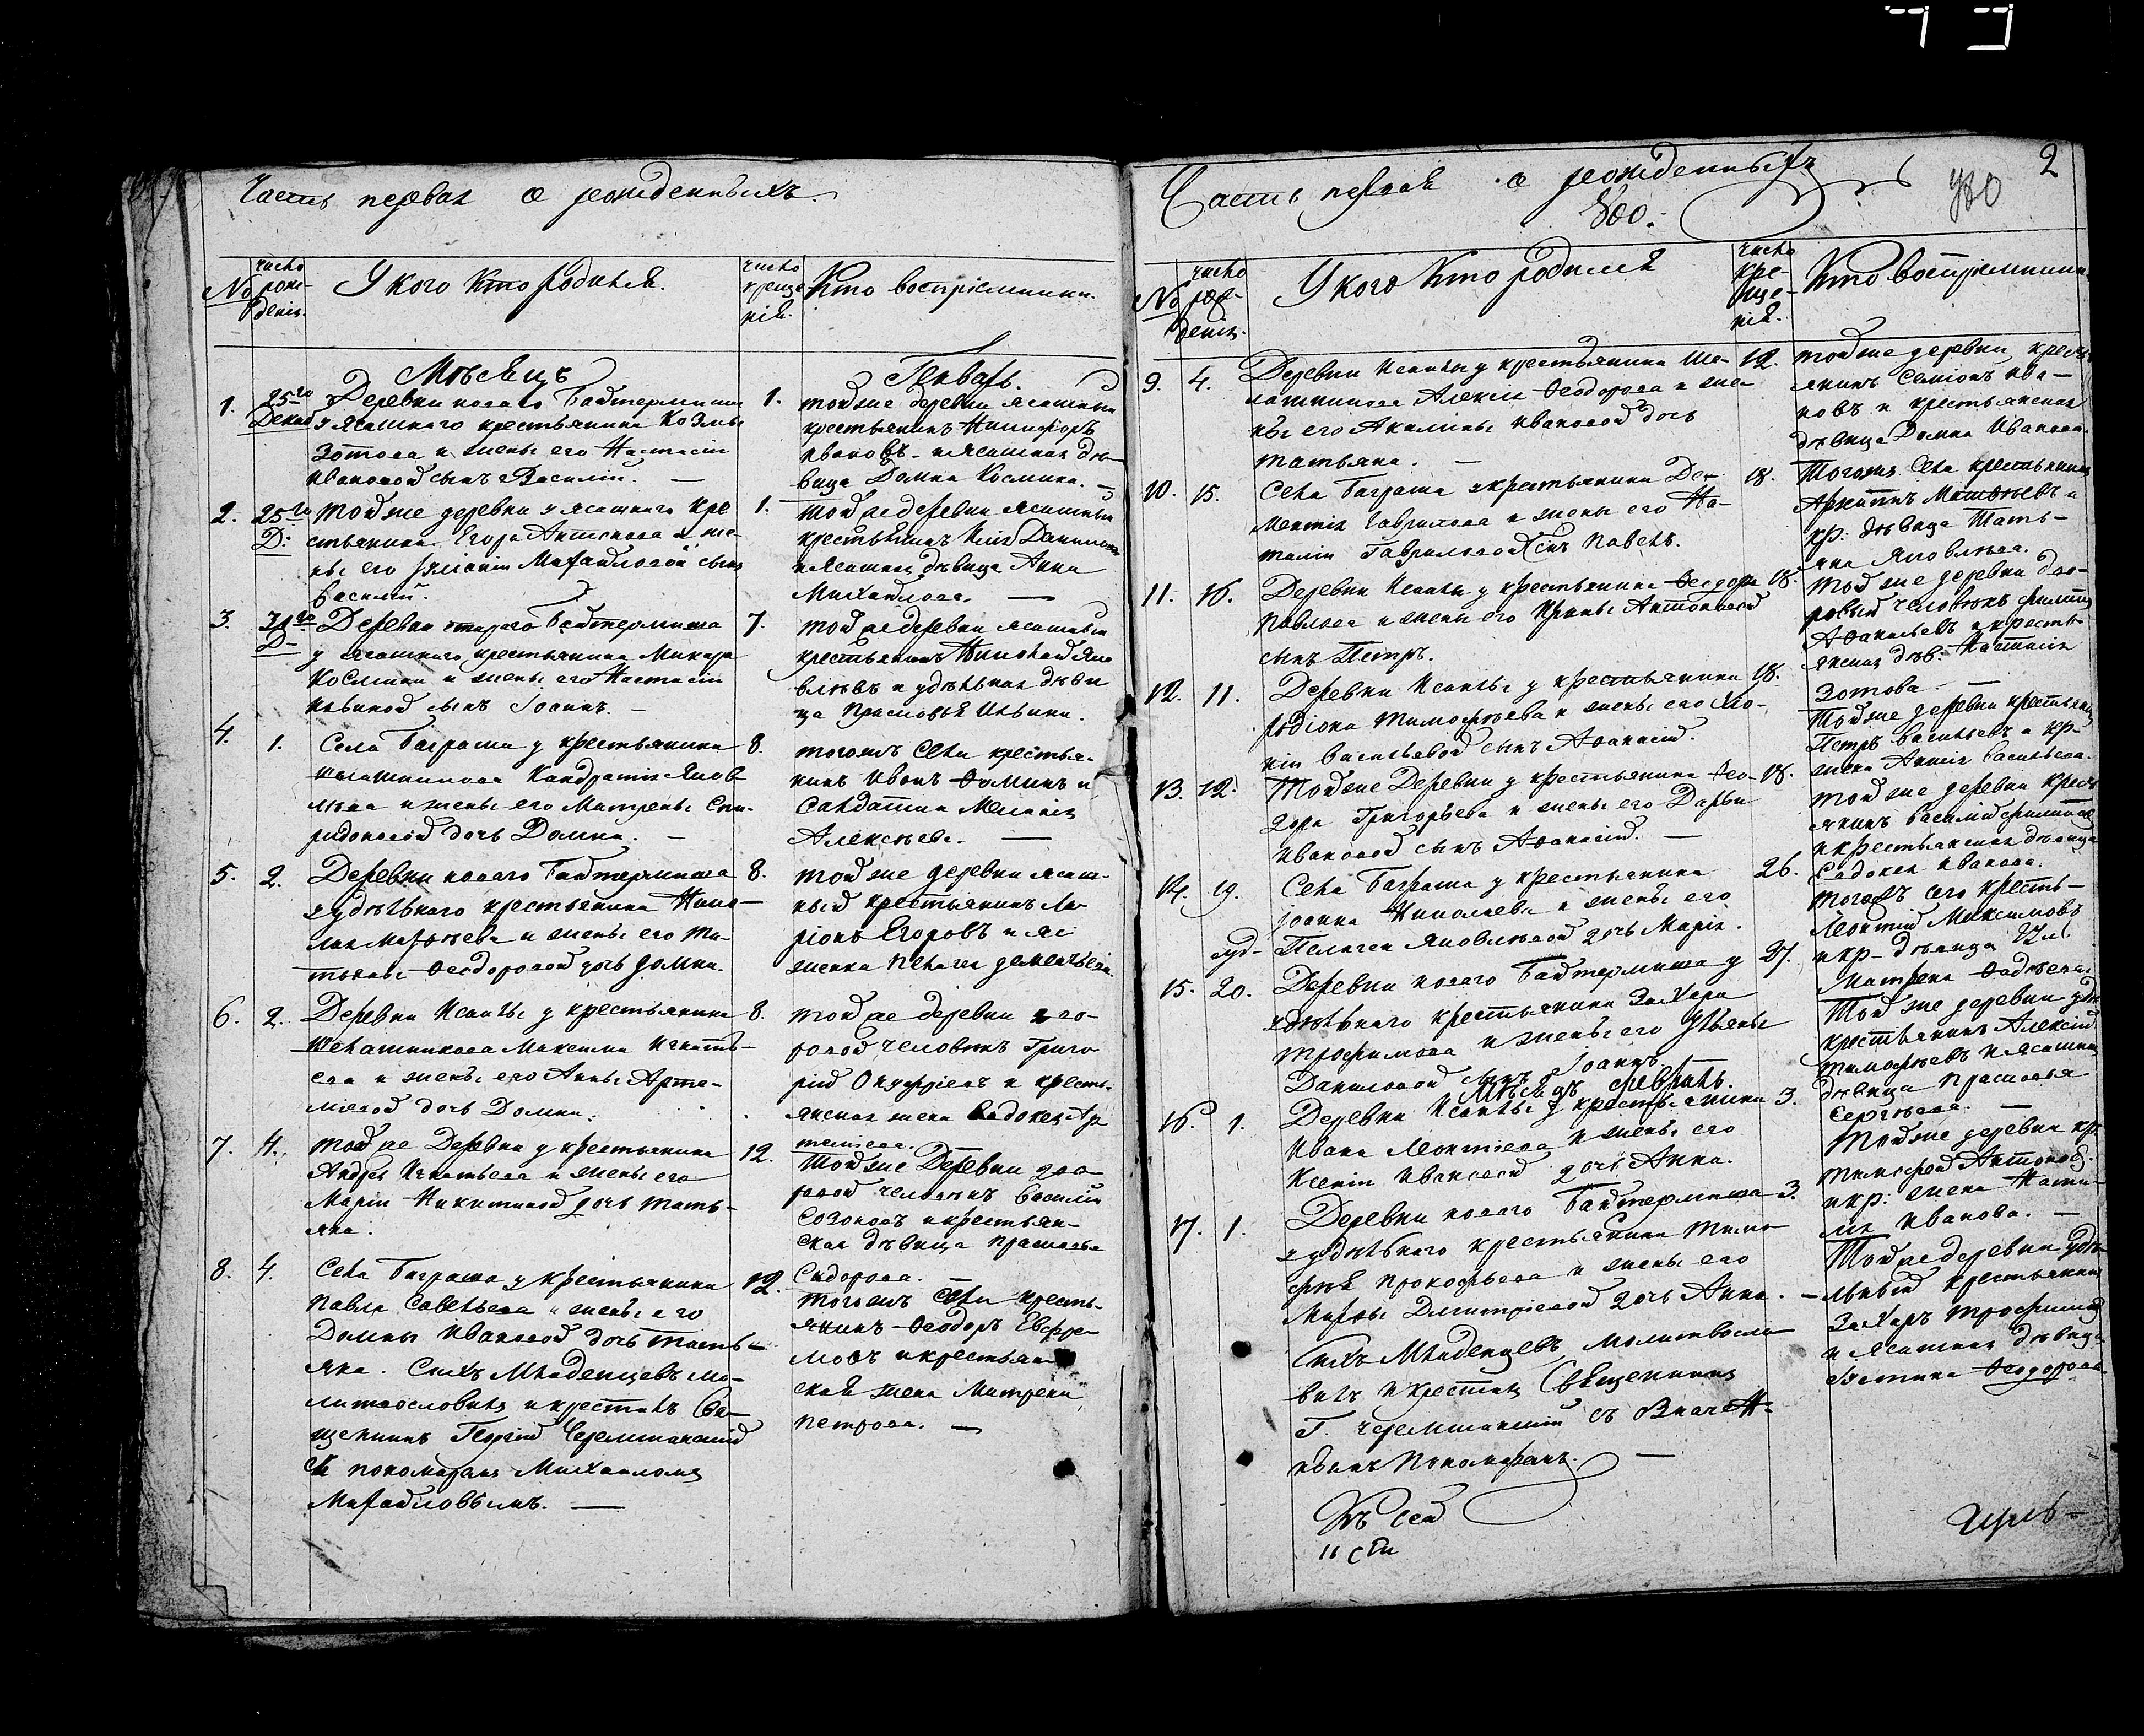 Часть первая о рожденныхъ.
№
число рож-
денія.
У кого Кто родился.
число
креще
нія.
Кто воспріемники.
Мѣсяцъ
Генварь.
1.
25го
Декаб
Деревни новаго Байтермиша
у ясашнаго крестьянина Козмы
Зотова и жены его Настасіи
Ивановой сынъ Василій. —
1.
той же деревни ясашный
крестьянинъ Никифоръ
Ивановъ и ясашная дѣ-
вица Домна Космина. —
2.
25го
Д:
той же деревни у ясашнаго кре
стьянина Егора и же-
ны его Михайловой сынъ
Василій.
1.
той же деревни ясашный
крестьянинъ Данилов
и ясашная дѣвица Анна
Михайлова. —
3.
31го
Д-
Деревни стараго Байтермиша
у ясашнаго крестьянина Макара
Космина и жены его Настасіи
Ильиной сынъ Іоаннъ. —
7.
той же деревни ясашный
крестьянинъ Николай Яко
влѣвъ и удѣльная дѣви
ца Прасковья Ильина.
4.
1.
Села Баграша у крестьянина
Шелашникова Кандратія Яков
лѣва и жены его Матрены Спи-
ридоновой дочь Домна. —
8.
тогожъ села крестья-
нинъ Иванъ Ѳоминъ и
Салдатка Меланія
Алексѣева. —
5.
2.
Деревни новаго Байтермиша
удѣльнаго крестьянина Нико-
лая Матвѣева и жены его Та-
тьяны Ѳеодоровой дочь Домна.
8.
той же деревни ясаш-
ный крестьянинъ Ла-
ріонъ Егоровъ и яс:
женка Пелагея Дементьева
6.
2.
Деревни Исаклы у крестьянина
Шелашникова Максима Игнать-
ева и жены его Анны Арте-
міевой дочь Домна.
8.
той же деревни дво-
ровой человѣкъ Григо
рій Онуфріевъ и кресть-
янская жена Евдокея Ар
теміева.
7.
4.
той же Деревни у крестьянина
Андрея Игнатьева и жены его
Маріи Никитиной дочь Тать-
яна.
12.
Той же Деревни дво
ровой человѣкъ Василій
Созоновъ и крестьян-
ская дѣвица Прасковья
Сидорова. —
8.
4.
Села Баграша у крестьянина
Павла Савельева и жены его
Домны Ивановой дочь Тать-
яна. Сихъ Младенцевъ мо-
литвословилъ и крестилъ Свя-
щенникъ Георгій Черемшанскій
съ пономаремъ Михаиломъ
Михайловымъ. —
12.
тогожъ села кресть-
янинъ Ѳеодоръ Евфре-
мовъ и крестьян
ская жена Матрена
Петрова. —
Часть первая о рожденныхъ
2
№
число
рож-
денія.
У кого Кто родился
число
кре-
ще-
нія.
Кто воспріемники
9.
4.
Деревни Исаклы у крестьянина Ше-
лашникова Алексія Ѳеодорова и же-
ны его Акилины Ивановой дочь
Татьяна. —
12.
той же деревни кресть
янинъ Семіонъ Ива-
новъ и крестьянская
дѣвица Домна Иванова.
10.
15.
Села Баграша у крестьянина Де-
ментія Гаврилова и жены его На-
таліи Гавриловой сынъ Павелъ.
18.
Тогожъ Села крестьянинъ
Архиппъ Матвѣевъ и
кр: дѣвица Тать-
яна Яковлѣва.
11.
16.
Деревни Исаклы у крестьянина Ѳеодора
Павлова и жены его Ирины Антоновой
сынъ Петръ.
18.
той же деревни дво-
ровый человѣкъ Филиппъ
Аѳанасьевъ и кресть-
янская дѣв: Настасія
Зотова. —
12.
11.
Деревни Исаклы у крестьянина
Родіона Тимофѣева и жены его
Васильевой сынъ Аѳанасій.
18.
Той же деревни крестьянинъ
Петръ Васильевъ и кр-
жена Анисія Васильева.
13.
12.
Той же Деревни у крестьянина Ѳео-
дора Григорьева и жены его Дарьи
Ивановой сынъ Аѳанасій. —
18.
той же деревни кресть
янинъ Василій Филиппов
и крестьянская дѣвица
Евдокея Иванова.
14.
19.
Села Баграша у крестьянина
Іоанна Николаева и жены его
Пелагеи Яковлѣвой дочь Марія.
26.
тогожъ села кресть-
Леонтій Максимовъ
и кр- дѣвица
Матрена Ѳадѣева.
15.
20.
Деревни новаго Байтермиша у
удѣльнаго крестьянина Захара
Трофимова и жены его Ульяны
Даниловой сынъ Іоаннъ.
27.
Той же деревни уд
крестьянинъ Алексій
Тимофѣевъ и ясашная
дѣвица Прасковья
Сергѣева. —
Мѣсяцъ Февраль.
16.
1.
Деревни Исаклы у крестьянина
Ивана Леонтіева и жены его
Ксеніи Ивановой дочь Анна.
3.
Той же деревни кр.
Тимофей Антоновъ
и кр: жена Ната-
лія Иванова. —
17.
1.
Деревни новаго Байтермиша
удѣльнаго крестьянина Тимо-
фѣя Прокофьева и жены его
Марфы Дмитріевой дочь Анна. —
3.
Той же деревни удѣ-
льный крестьянинъ
Захаръ Трофимов
и ясашная дѣвица
Ѳеодорова.
Сихъ Младенцевъ молитвосло-
вилъ и крестилъ Священникъ
Г. Черемшанскій съ
Пономаремъ. —
Къ сей